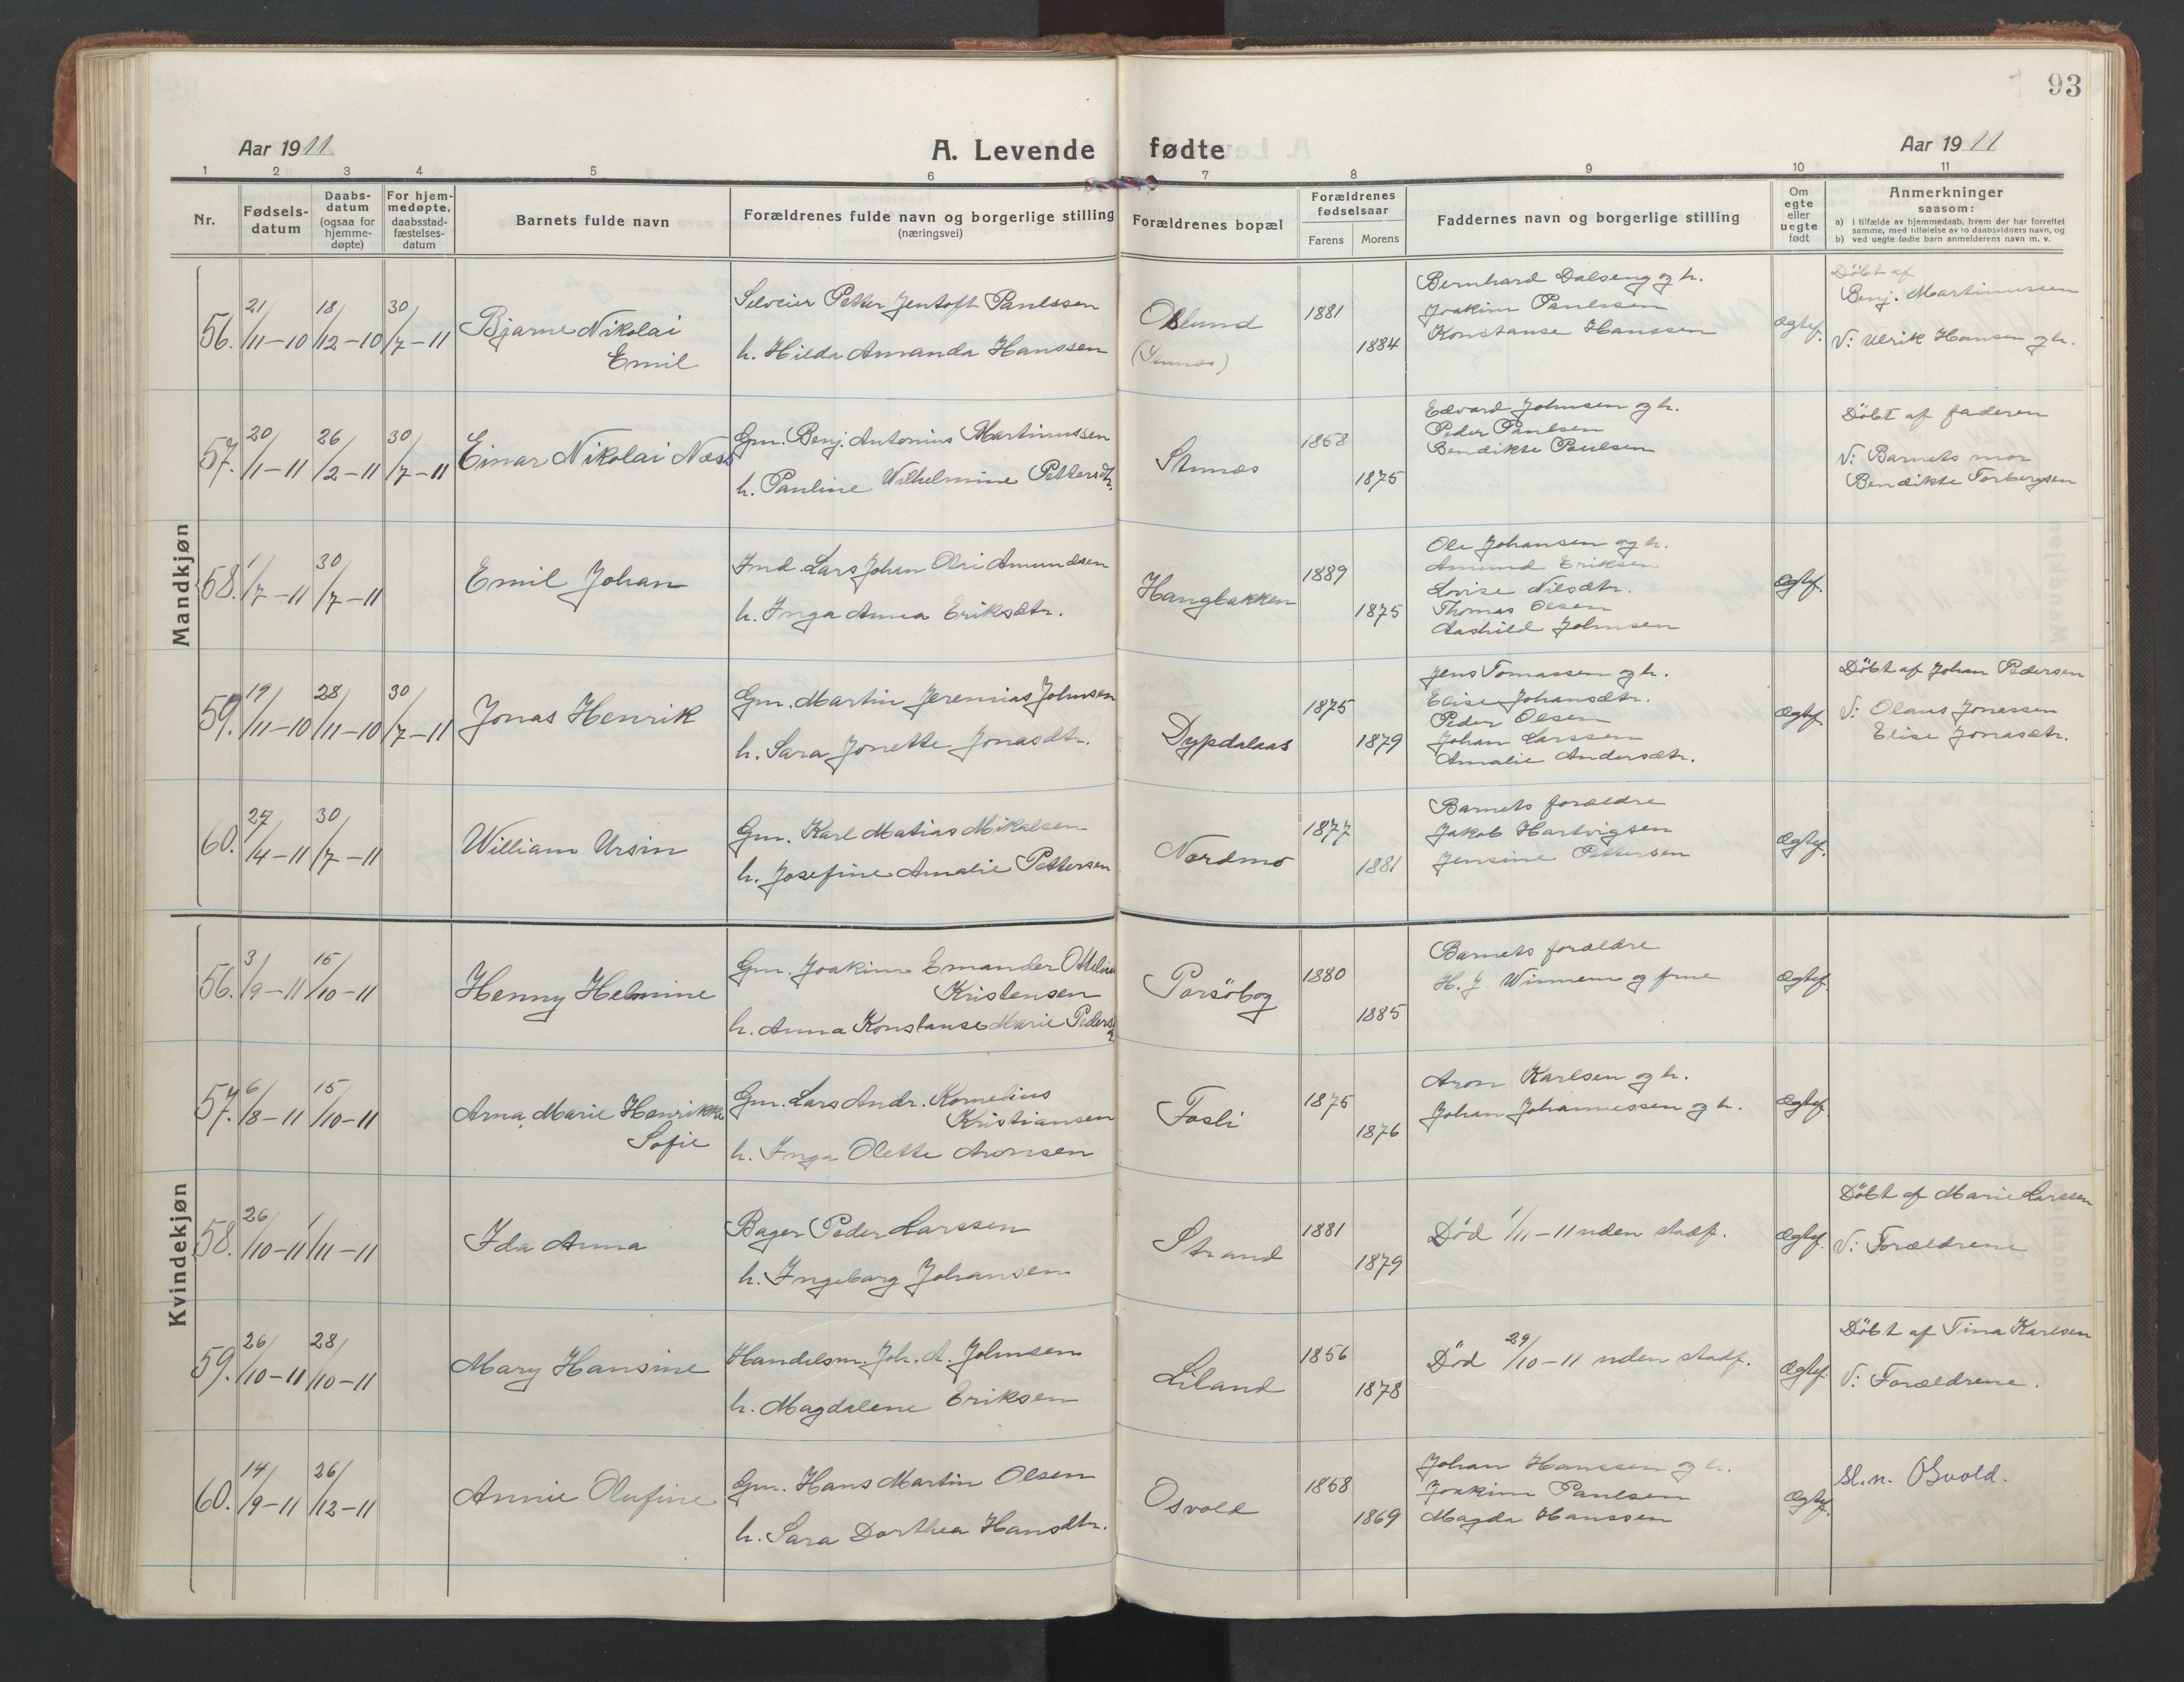 93
Aar 1911 A. Levende fødte Aar 1911
1 2 3 4 5 6 7 8 9 10 11
Nr. Fødsels-datum Daabs-datum (ogsaa for hjemme-døpte) For hjem-medøpte, daabsstad-fæstelses-datum Barnets fulde navn Forældrenes fulde navn og borgerlige stilling (næringsvei) Forældrenes bopæl Forældrenes fødselsaar Farens Morens Faddernes navn og borgerlige stilling Om egte eller uegte født Anmerkninger saasom:
a) i tilfælde av hjemmedaab, hvem der har forrettet samme, med tilføielse av to daabsvidners navn, og
b) ved uegte fødte barn anmelderens navn m. v.
Mandkjøn
56. 21/11-10 18/12-10 30/7-11
Bjarne Nikolai
Emil
Petter Jentoft Paulssen
h. Hilda Amanda Hanssen
1881
1884
Bernhard Dalseng og h.
Joakim Paulssen
Konstanse Hanssen
Ægtef.
Döbt af
Benj. Martinussen
V: Ulrik Hansen og h.
57. 20/1-11 26/2-11 30/7-11
Einar Nikolai Næss
Gm. Benj. Antonius Martinussen
h. Pauline Wilhelmine Pettersdtr.
1875
Edvard Johnsen og h.
Peder Paulsen
Bendikte Paulsen
Döbt af faderen
V: Barnets mor
Bendikte Torbergsen
58. 1/7-11 30/7-11
Emil Johan
Ind. Lars Johan Olai Amundsen
h. Inga Anna Eriksdtr.
Hangbakken
1889
1875
Ole Johansen og h.
Amund Eriksen
Lovise Nilsdtr.
Thomas Olsen
Aashild Johnsen
Ægtef.
59. 19/11-10 28/11-10 30/7-11
Jonas Henrik
Gm. Martin Jeremias Johnsen
h. Sara Jonette Jonasdtr.
Dypdalaas
1875
1879
Jens Tomassen og h.
Elise Johansdtr.
Peder Olsen
Johan Larssen
Amalie Andersdtr.
Ægtef.
Döbt af Johan Pedersen
V: Olaus Jonassen
Elise Jonasdtr.
60. 27/4-11 30/7-11
William Ursin
Gm. Karl Matias Mikalsen
h. Josefine Amalie Pettersen
Nordmo
1877
1881
Barnets forældre
Jakob Hartvigsen
Jensine Pettersen
Ægtef.
Kvindekjøn
56. 3/9-11 15/10-11
Henny Helmine
Gm. Joakim Emander
Kristensen
h. Anna Konstanse Marie
1880
1885
Barnets forældre
H. J. Winnem og frue
Ægtef.
57. 6/8-11 15/10-11
Arna Marie Henrikke
Sofie
Gm. Lars Andr. Kornelius
Kristiansen
h. Inga Olette Aronsen
Fosli
1875
1876
Aron Karlsen og h.
Johan Johannessen og h.
Ægtef.
58. 26/10-11 1/11-11
Ida Anna
Bager Peder Larssen
h. Ingeborg Johansen
Strand
1881
1879
Död 1/11-11 uden stadf.
Ægtef.
Döbt af Marie Larssen
V: Forældrene
59. 26/10-11 28/10-11
Mary Hansine
Handelsm. Joh. A. Johnsen
h. Magdalene Eriksen
Liland
1856
1878
Död 29/10-11 uden stadf.
Ægtef.
Döbt af Tina Karlsen
V: Forældrene.
60. 14/9-11 26/12-11
Annie Olufine
Gm. Hans Martin Olsen
h. Sara Dorthea Hansdtr.
Osvold
1868
1869
Johan Hanssen og h.
Joakim Paulsen
Magda Hanssen
Ægtef.
Sl.n. Osvold.